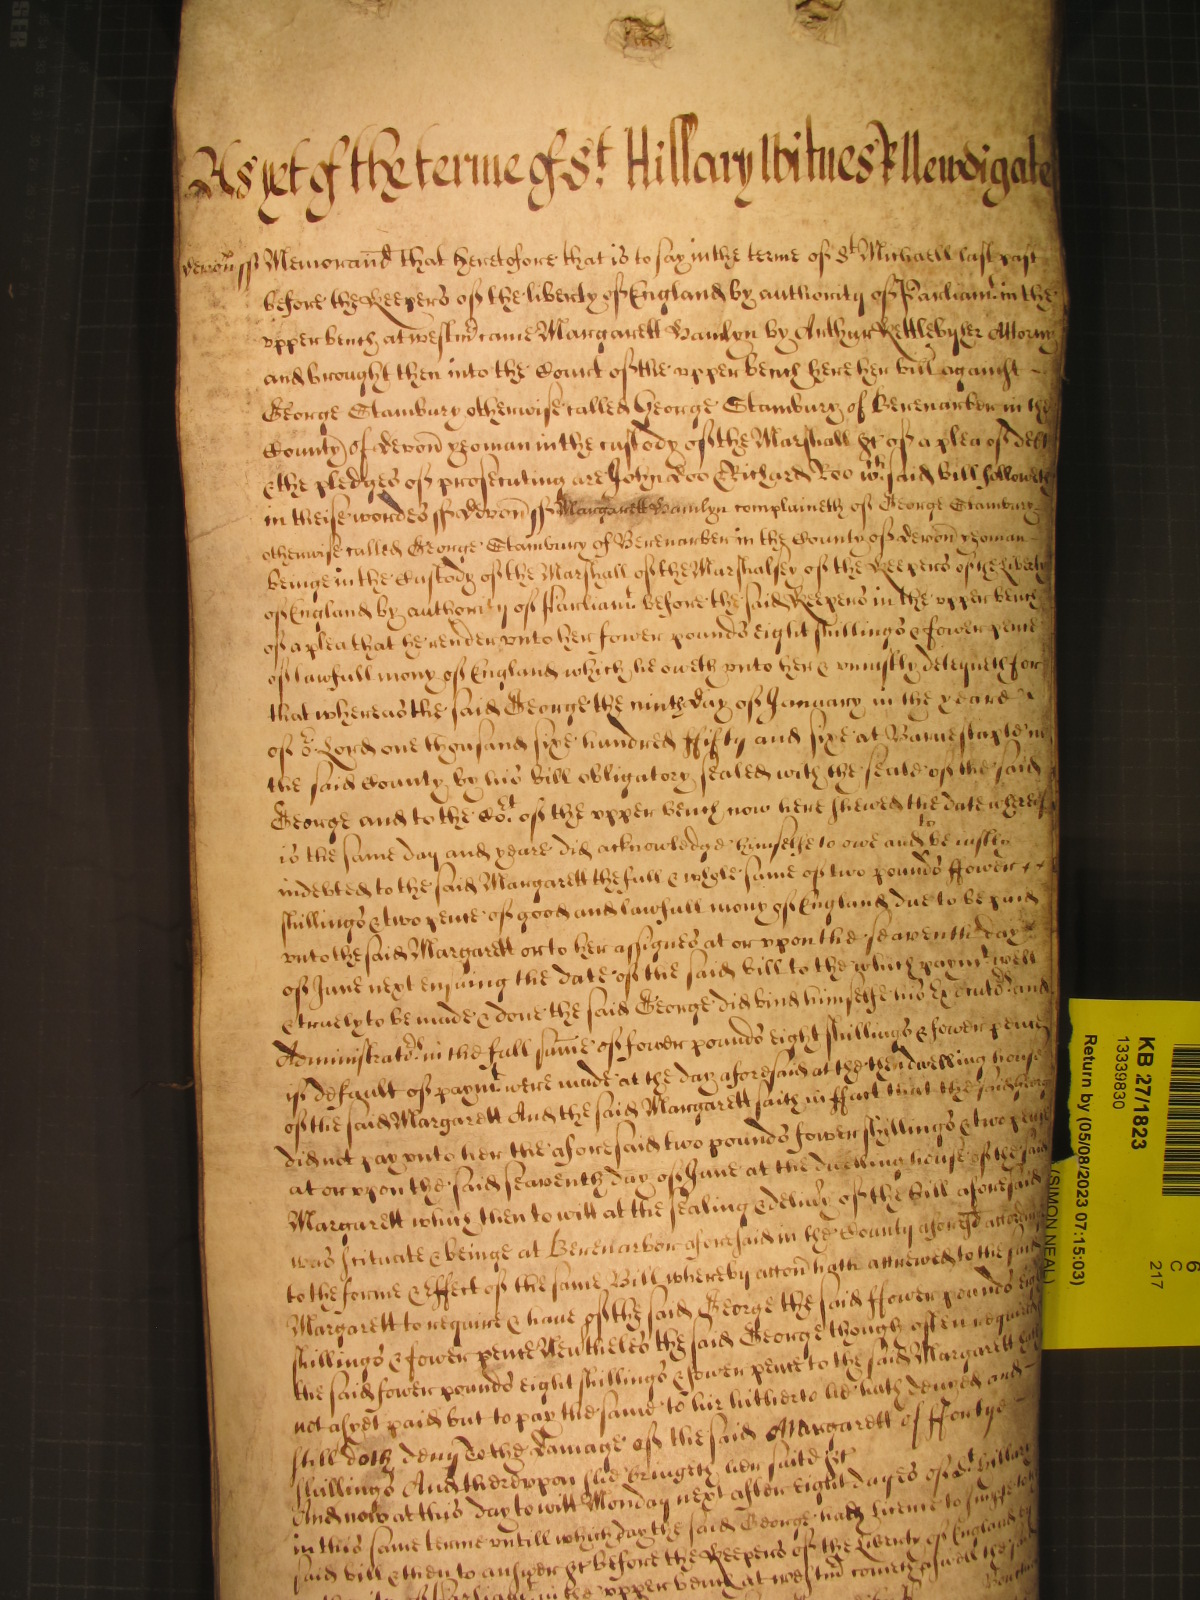 As yet of the terme of St. Hillary Witnes R Newdigate
Devon ss Memorand that heretofore that is to say in the terme of St Michaell last past
before the Keepers of the liberty of England by authority of Parliamt. in the
upper bench at westmr came Margarett Hamlyn by Arthur Kettleby her Attorny
and brought then into the Court of the upper bench here her bill against
George Stanbury otherwise called George Stanbury of Berenarber in the
County of devon yeoman in the custody of the Marshall &c of a plea of debt
& the pledges of prosecuting are John Doo & Richard Roo wch. said bill followeth
in theise wordes ss Devon ss Margarett Hamlyn complaineth of George Stanbury
otherwise called George Stanbury of Berenarber in the County of devon yeoman
beinge in the Custody of the Marshall of the Marshalsey of the Keepers of the Liberty
of England by authority of Parliamt. before the said Keepers in the upper bench
of a plea that he render unto her fower pounds eight shillings & fower pence
of lawfull mony of England which he oweth unto her & uniustly deteyneth for
that whereas the said George the ninth day of January in the yeare
of or. Lord one thousand sixe hundred fifty and sixe at Barnestaple in
the said County by his bill obligatory sealed with the seale of the said
George and to the Cort. of the upper bench now here shewed the date whereof
is the same day and yeare did acknowledge himselfe to owe and to be iustly
indebted to the said Margarett the full & whole some of two pounds ffower
shillings & two pence of good and lawfull mony of England due to be paid
unto the said Margarett or to her assignes at or uppon the seaventh day
of June next ensuing the date of the said bill to the which paymt. well
& truely to be made & done the said George did bind himselfe his Executors. and
Administrators. in the full sume of fower pounds eight shillings & fower pence
if default of paymt. were made at the day aforesaid at the then dwelling house
of the said Margarett And the said Margarett saith in ffact that the said George
did not pay unto her the aforesaid two pounds fower shillings & two pence
at or uppon the said seaventh day of June at the dwelling house of the said
Margarett which then to witt at the sealing & delivy of the bill aforesaid
was scituate & beinge at Berenarbor aforesaid in the County aforesd according
to the forme & Effect of the same Bill whereby accon hath accrewed to the said
Margarett to require & have of the said George the said ffower pounds eight
shillings & fower pence Nevtheles the said George though often required
the said fower pounds eight shillings & fower pence to the said Margarett hath
not as yet paid but to pay the same to her hitherto he hath denyed and
still doth deny to the damage of the said Margarett of ffortye
shillings And thereuppon she bringeth her suite &c
And now at this day to witt Monday next after eight dayes of St. Hillary
in this same terme untill which day the said George hath licence to imparle to the
said bill & then to answer &c before the Keepers of the Liberty of England by
authority of Parliamt in the upper bench at westmr cometh aswell the said
KB 27/1823
13339830
Return by (05/08/2023 07:15:03)
(SIMON NEAL)
6
C
217